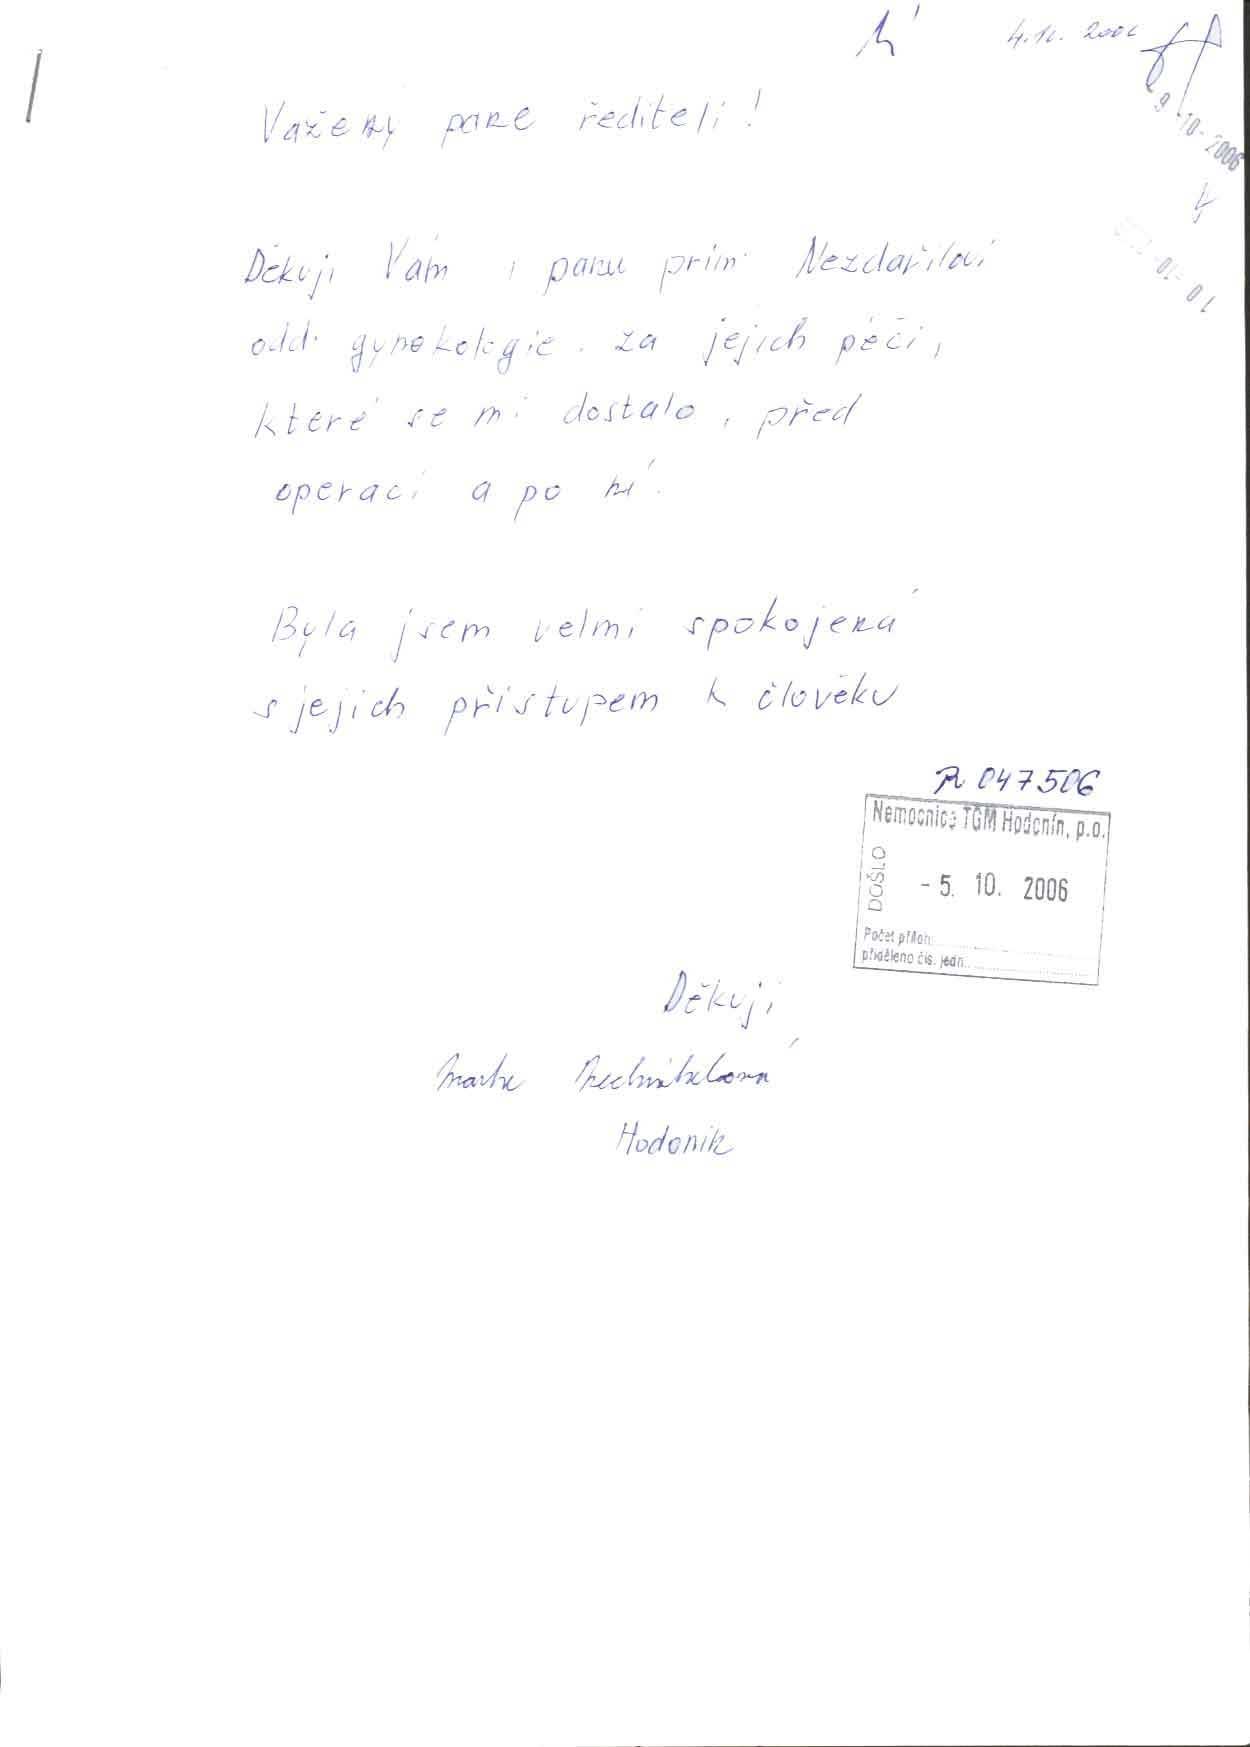 4.10. 2006
9 -10- 2006
10 -10-
Vážený pane řediteli!
Děkuji Vám i panu prim. Nezdařilovi
odd. gynekologie. za jejich péči,
které se mi dostalo, před
operací a po ní.
Byla jsem velmi spokojená
s jejich přístupem k člověku
R 047506
Nemocnice TGM Hodonín, p.o.
DOŠLO
- 5. 10. 2006
Počet příloh:
přiděleno čís. jedn.
Děkuji
Hodonín